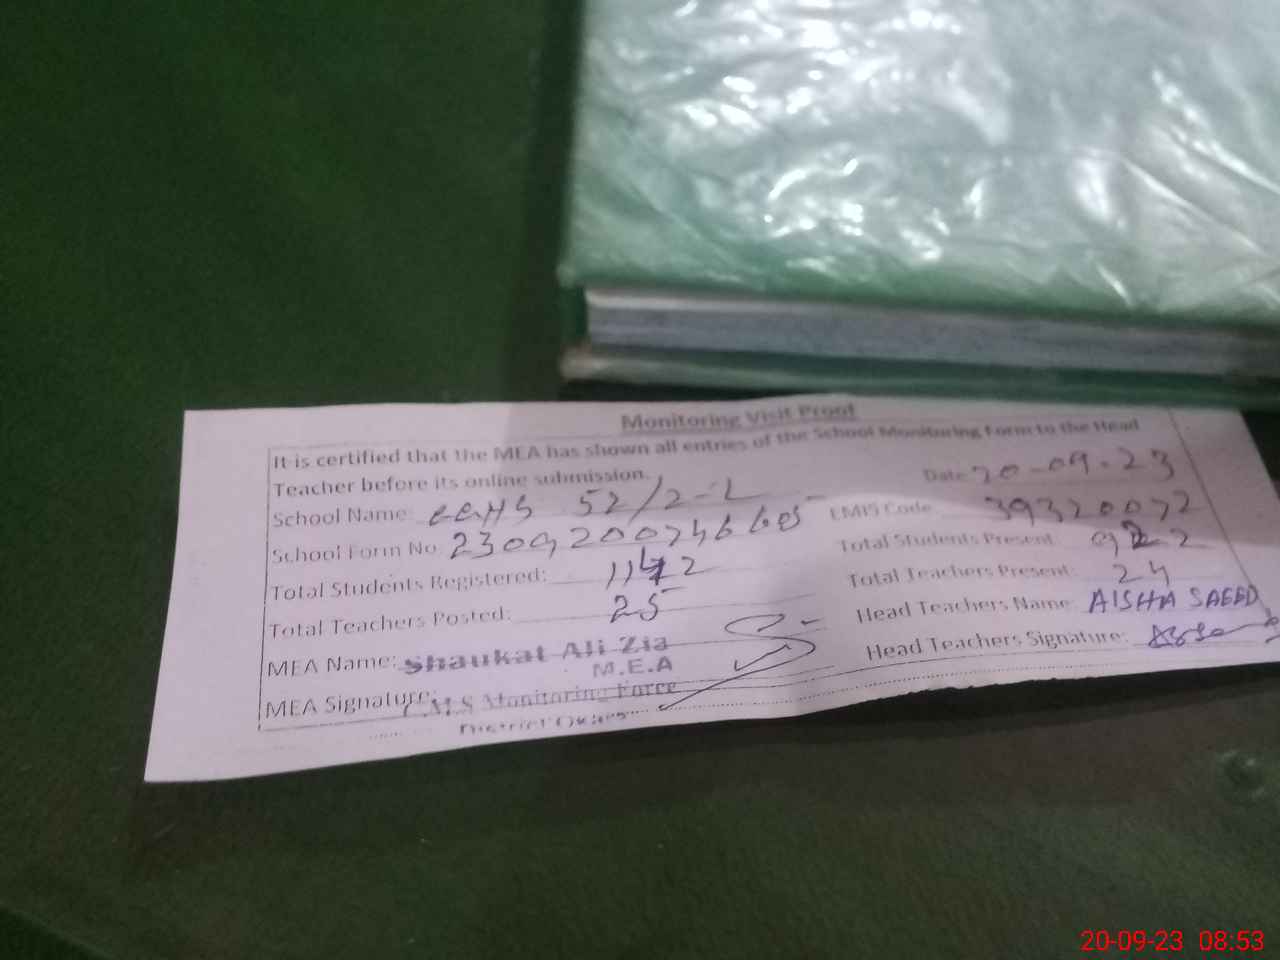 Monitoring Visit Proof
It is certified that the MEA has shown all entries of the School Monitoring Form to the Head
Teacher before its online submission.
Date 20-09-23
School Name: GGHS 52/2-L
EMIS Code 39320072
School Form No
Total Students Present: 922
Total Students Registered: 1142
Total Teachers Present: 24
Total Teachers Posted: 25
Head Teachers Name AISHA SAEED
MEA Name: Shaukat Ali Zia
M.E.A
Head Teachers Signature:
MEA Signature:
C.M.S Monitoring Force
District Okara
20-09-23 08:53